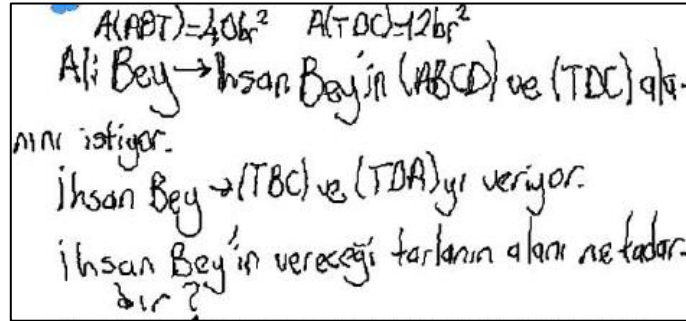 A(ABT)=40br² A(TDC)=12br²
Ali Bey→İhsan Bey'in (ABCD) ve (TDC) ala-
nını istiyor.
İhsan Bey→(TBC) ve (TDA)yı veriyor.
İhsan Bey'in vereceği tarlanın alanı ne kadar-
dır?